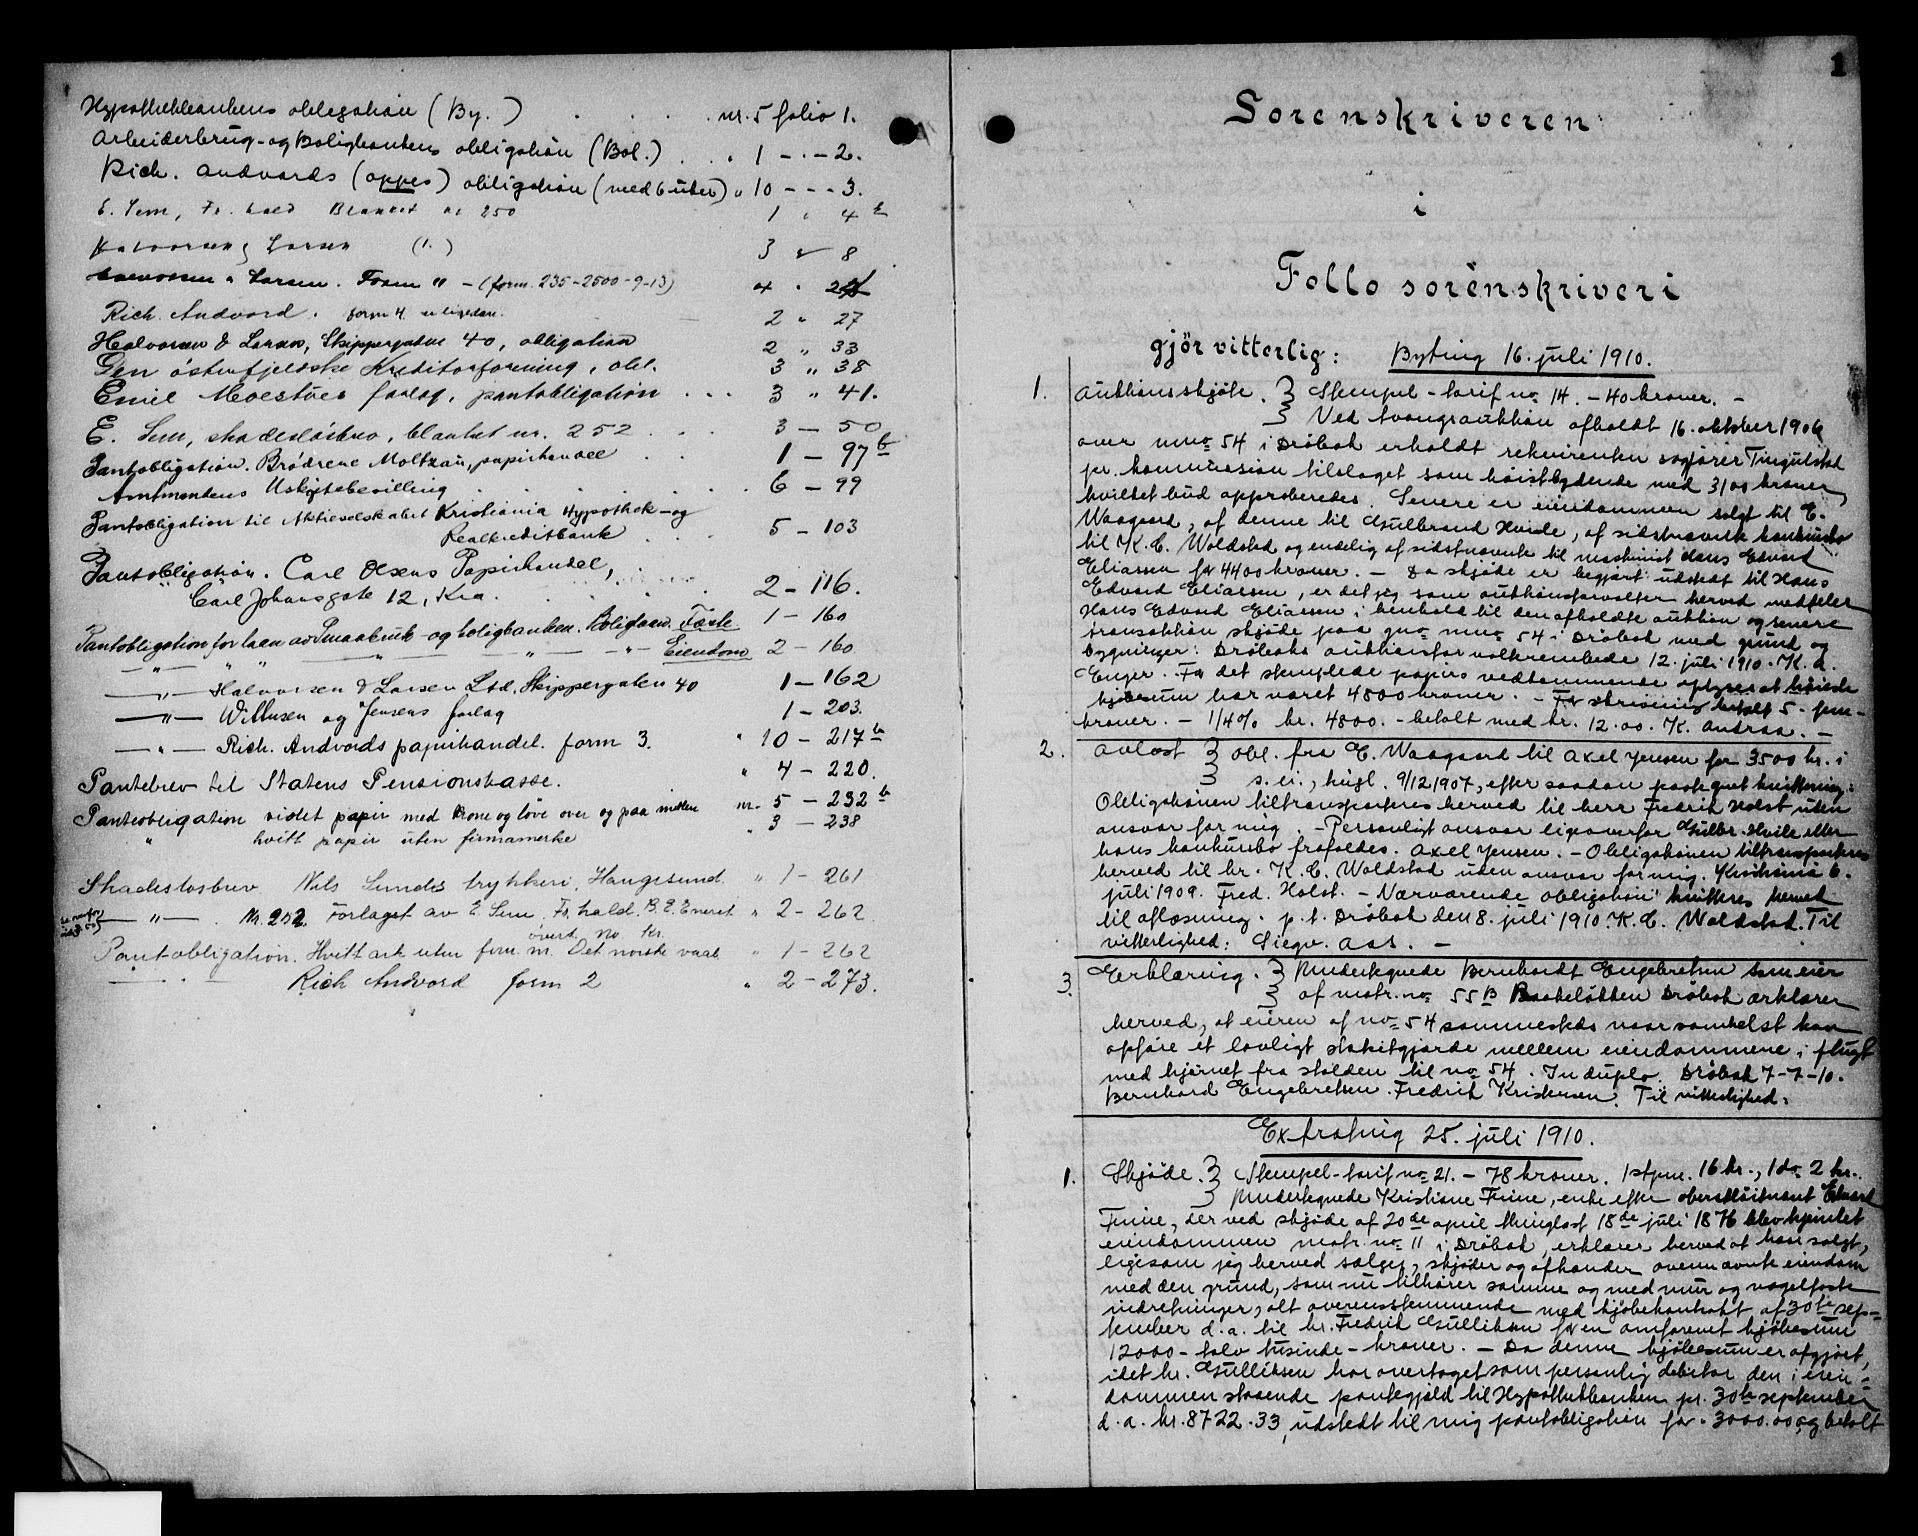 Hypothekbankens obligation (By.) . . . . nr. 5 folio 1.
Arbeiderbrug- og Boligbankens obligation (Bol.) . . " 1 - " - 2.
Rich. Andvords (oppes) obligation (med 6 uker) " 10 - - - 3.
E. Sem, Fr.hald Blanket nr 250 1 " 4 b
Halvorsen & Larsen (1.) 3 " 8
Halvorsen & Larsen. Form " - (form. 235-2500-9-13) 4 "
Rich. Andvord. form 4. 2 " 27
Halvorsen & Larsen, Skippergaten 40, obligation 2 " 33
Den østenfjeldske Kreditforening, obl. 3 " 38
Emil Moestues forlag, pantobligation . . . 3 " 41.
E. Sem, skadesløsbrev, blanket nr. 252 . . . 3 - 50
Pantobligation. Brødrene Moltzau, papirhandel . . 1 - 97 b
Amtmandens Uskiftebevilling . . . . . 6 - 99
Pantobligation til Aktieselskabet Kristiania Hypothek- og
Realkreditbank . . . 5 - 103
Pantobligation. Carl Olsens Papirhandel,
" Carl Johansgate 12, Kra. . . . . 2 - 116.
Pantobligation for laan av Smaabruk- og boligbanken. Boliglaan. Fæste 1 - 160
- " - " " - " - " - " - Eiendom 2 - 160
- " - Halvorsen & Larsen Ltd. Skippergaten 40 1 - 162
- " - Wittusen og Jensens forlag 1 - 203.
- " - Rich. Andvords papirhandel. form 3. " 10 - 217 b
Pantebrev til Statens Pensionskasse. " 4 - 220.
Panteobligation violet papir med Krone og løve over og paa midten nr. 5 - 232 b
" hvitt papir uten firmamerke " 3 - 238
Skadesløsbrev. Nils Sundes trykkeri, Haugesund. " 1 - 261
- " - . Nr. 252 Forlaget av E. Sem, Fr.hald. B. E. Eneret " 2 - 262
øverst No Kr.
Pantobligation. Hvitt ark uten firm. m. Det norske vaab " 1 - 262
- " - Rich Andvord form 2 " 2 - 273.
1
Sorenskriveren
i
Follo sorenskriveri
gjör vitterlig: Byting 16. juli 1910.
1. Auktionsskjøte. } Stempel-tarif no 14. - 40 kroner. -
} Ved tvangsauktion afholdt 16. oktober 1906
over mno 54 i Drøbak erholdt rekvirenten sagfører Tingulstad
pr. kommission tilslaget som høistbydende med 3100 kroner,
hvilket bud approberedes. Senere er eiendommen solgt til E.
Waagaard, af denne til Gulbrand Hvide, af sidstnævnte konkursbo
til K. C. Woldstad og endelig af sidstnævnte til maskinist Hans Edvard
Eliassen for 4400 kroner. - Da skjøde er begjært udstedt til Hans
Edvard Eliassen, er det jeg som auktionsforvalter herved meddeler
Hans Edvard Eliassen i henhold til den afholdte auktion og senere
transaktion skjøde paa gno mno 54 i Drøbak med grund og
bygninger: Drøbaks auktionsforvalterembede 12. juli 1910. K. A.
Enger. For det stemplede papirs vedkommende oplyses at høieste
kjøbesum har været 4800 kroner. - For skrivning betalt 5 - fem -
kroner. - 1/4 % kr. 4800. - betalt med kr. 12.00. K. Andraa. -
2. Avløst } Obl. fra E. Waagaard til Axel Jensen for 3500 kr. i
} s. ei., tingl. 9/12 1907, efter saadan paategnet kvittering:
Obligationen tiltransporteres herved til herr Fredrik Holst uden
ansvar for mig. - Personligt ansvar ligeoverfor Gulbr. Hvile eller
hans konkursbo frafaldes. Axel Jensen. - Obligationen tiltransporteres
herved til hr. K. C. Woldstad uden ansvar for mig. Kristiania 6.
juli 1909. Fred. Holst. - Nærværende obligation kvitteres herved
til aflæsning. p. t. Drøbak den 8. juli 1910. K. C. Woldstad. Til
vitterlighed: Siegv. Aas. -
3. Erklæring. } Undertegnede Bernhardt Engebretsen som eier
} af matr. no 55 B Bakkeløkken Drøbak erklærer
herved, at eieren af no 54 sammesteds naar somhelst kan
opføre et lovligt stakitgjærde mellem eiendommene i flugt
med hjørnet fra stalden til no 54. In duplo. Drøbak 7-7-10.
Bernhard Engebretsen. Fredrik Kristensen. Til vitterlighed:
Extrating 25. juli 1910.
1. Skjøde. } Stempel-tarif no 21. - 78 kroner. 1 stpm. 16 kr., 1 do 2 kr.
} Undertegnede Kristiane Finne, enke efter oberstløitnant Edvard
Finne, der ved skjøde af 20de april thinglæst 18de juli 1876 blev hjemlet
eiendommen matr. no 11 i Drøbak, erklærer herved at have solgt,
ligesom jeg herved sælger, skjøder og afhænder ovennævnte eiendom
med den grund, som nu tilhører samme og med mur og nagelfaste
indretninger, alt overensstemmende med kjøbekontrakt af 30te sep-
tember d. a. til hr. Fredrik Gulliksen for en omforenet kjøbesum
12000 - tolv tusinde - kroner. - Da denne kjøbesum er afgjort,
idet hr. Gulliksen har overtaget som personlig debitor den i eien-
dommen staaende pantegjæld til Hypothekbanken pr. 30te september
d. a. kr. 8722.33, udstedt til mig pantobligation for 3000.00 og betalt